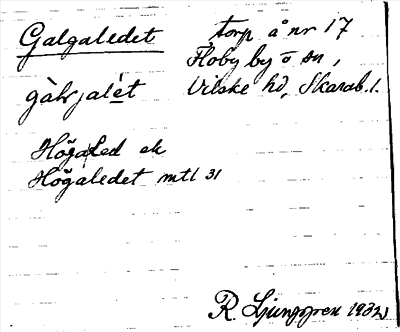 Galgaledet torp å nr 17
Floby by o sn,
gàḷrjalét Vilske hd, Skarab. l.
Högaled ek
Högaledet mtl 31
R. Ljunggren 1932